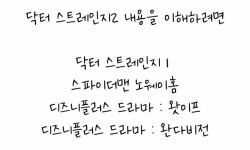 닥터 스트레인지2 내용을 이해하려면
닥터 스트레인지 1
스파이더맨 노웨이홈
디즈니플러스 드라마 : 왓이프
디즈니플러스 드라마 : 완다비전